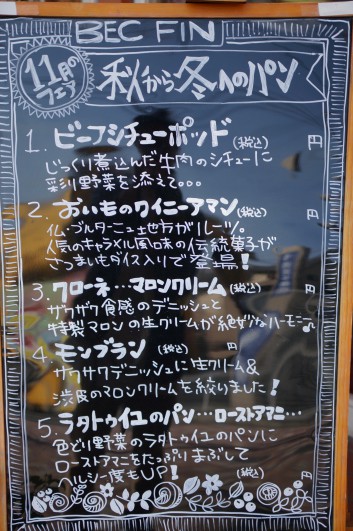 BEC FIN
11月の
フェア
秋から冬へのパン
1. ビーフシチューポッド(税込) 円
じっくり煮込んだ牛肉のシチューに
彩り野菜を添えて。。。
2. おいものクイニーアマン(税込) 円
仏・ブルターニュ地方がルーツ。
人気のキャラメル風味の伝統菓子が
さつまいもダイス入りで登場!
3. クローネ…マロンクリーム(税込) 円
ザクザク食感のデニッシュと
特製マロンの生クリームが絶妙なハーモニー♪
4. モンブラン (税込) 円
サクサクデニッシュに生クリーム&
渋皮のマロンクリームを絞りました!
5. ラタトゥイユのパン…ローストアマニ…
色どり野菜のラタトゥイユのパンに
ローストアマニをたっぷりまぶして
ヘルシー度もUP! (税込) 円